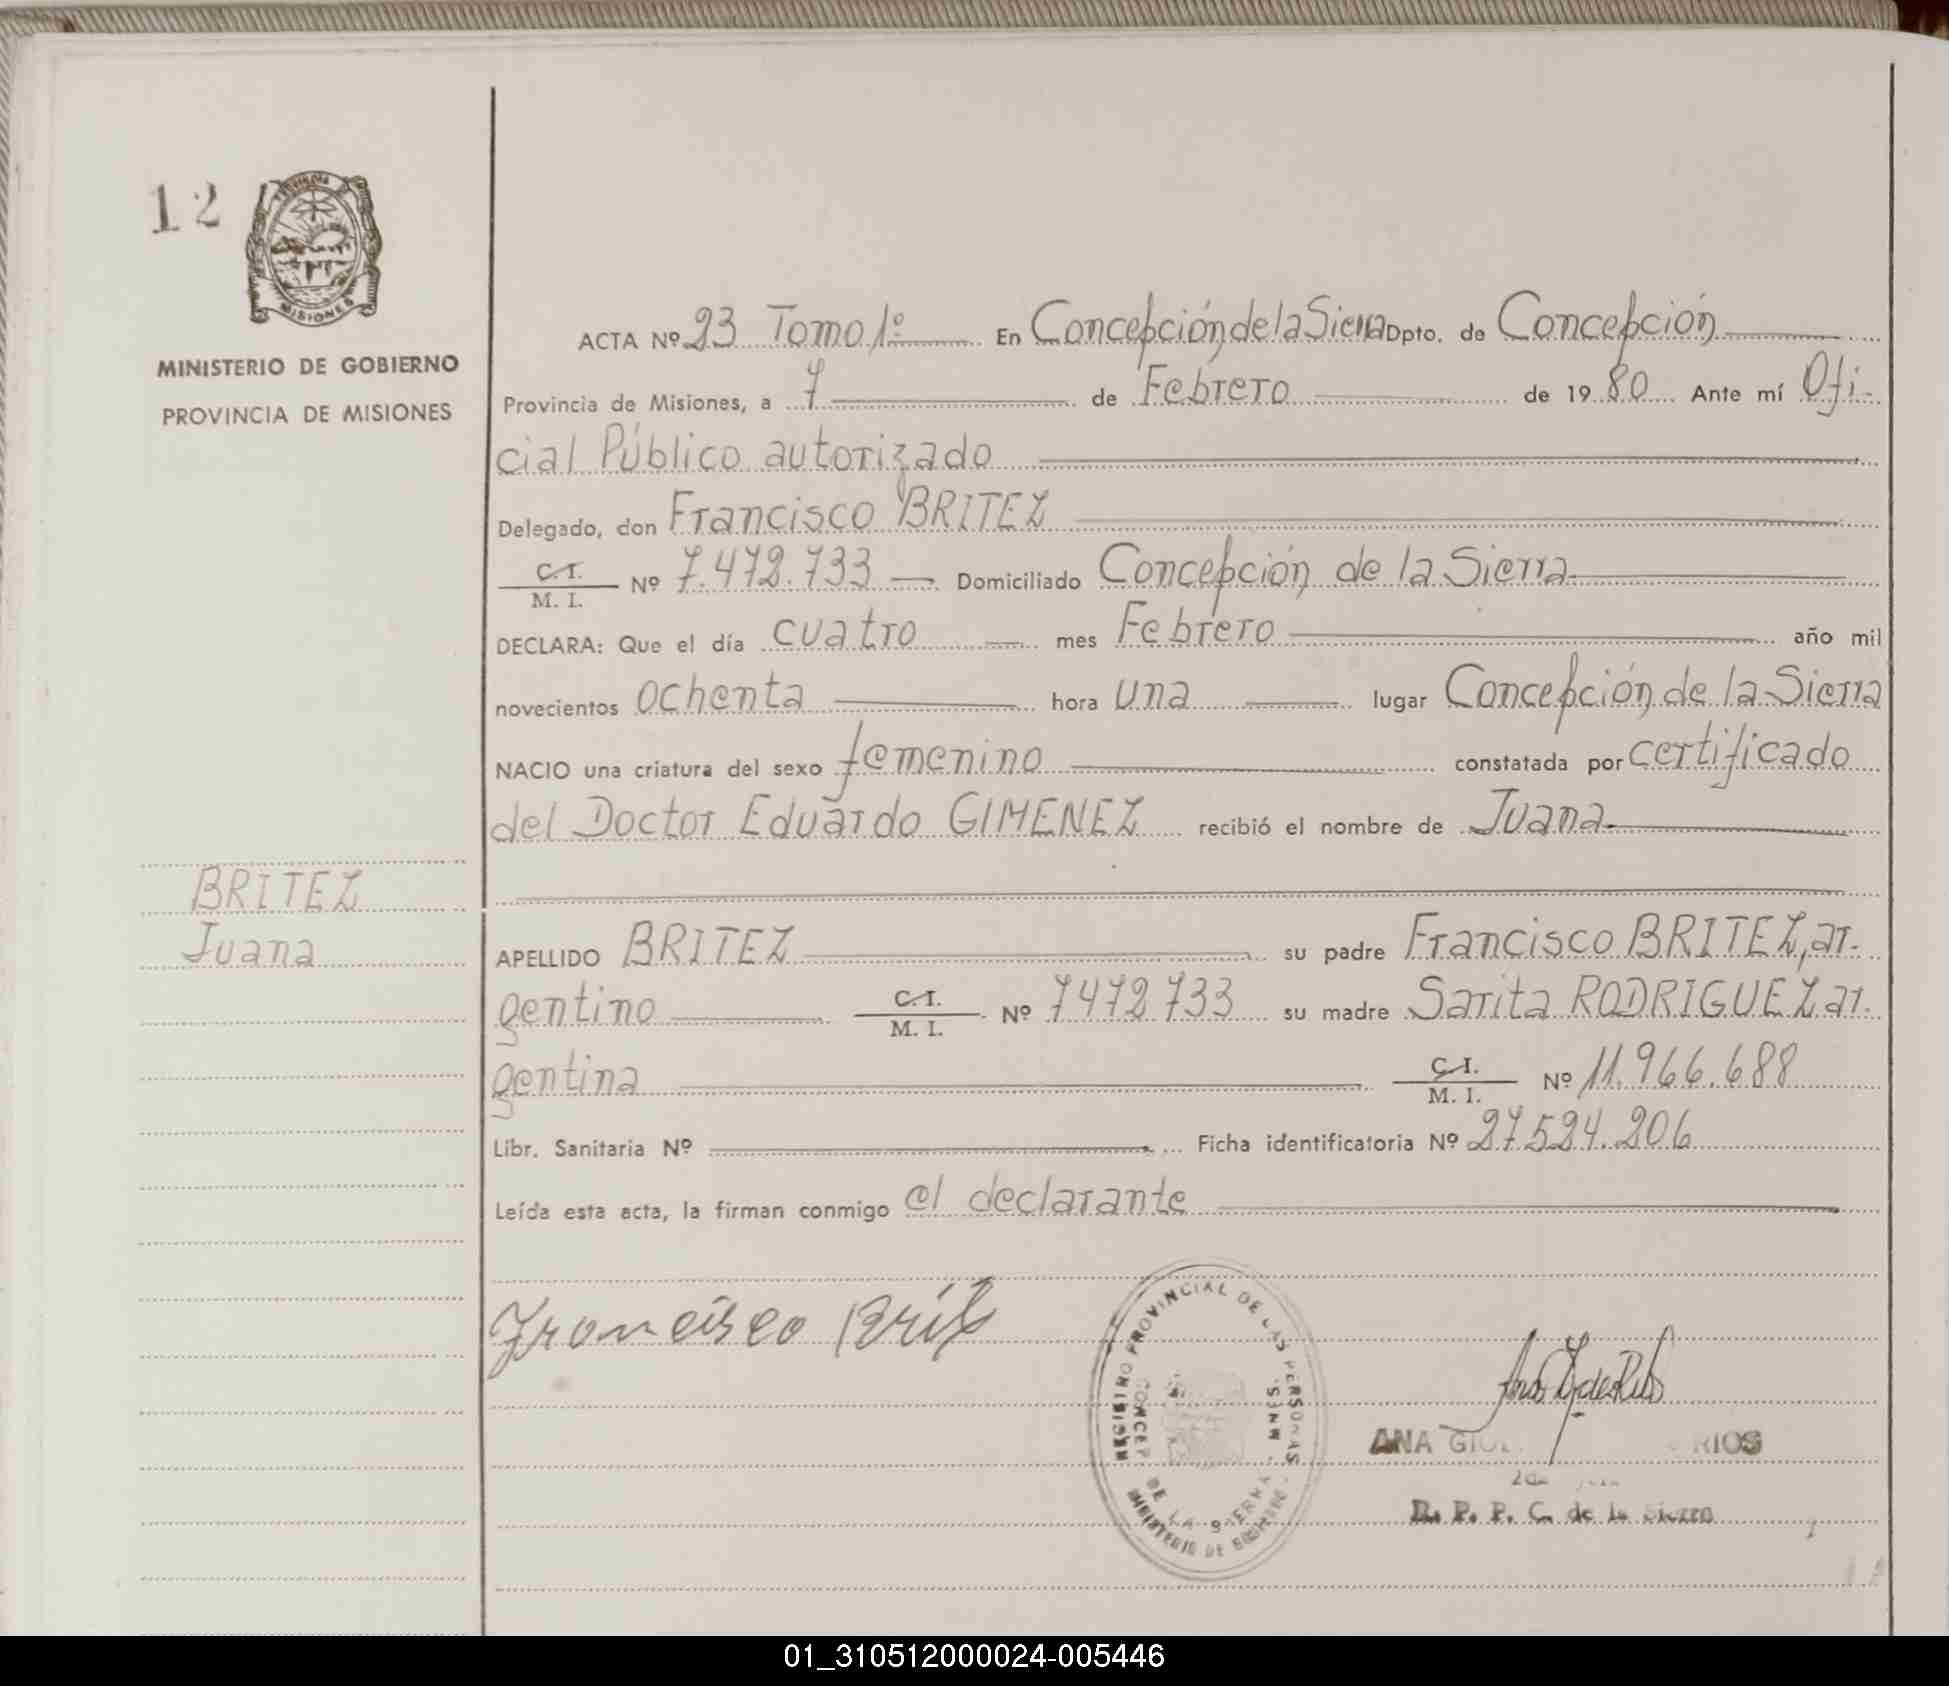 12
PROVINCIA DE
MISIONES
MINISTERIO DE GOBIERNO
PROVINCIA DE MISIONES
ACTA Nº 23 Tomo 1º En Concepción de la Sierra Dpto. de Concepción
Provincia de Misiones, a 7 de Febrero de 1980 Ante mí Ofi-
cial Público autorizado
Delegado, don Francisco BRITEZ
C.I.
M. I. Nº 7.472.733 Domiciliado Concepción de la Sierra
DECLARA: Que el día cuatro mes Febrero año mil
novecientos ochenta hora una lugar Concepción de la Sierra
NACIO una criatura del sexo femenino constatada por certificado
del Doctor Eduardo GIMENEZ recibió el nombre de Juana
BRITEZ
Juana
APELLIDO BRITEZ su padre Francisco BRITEZ, ar-
gentino C.I.
M. I. Nº 7472733 su madre Sarita RODRIGUEZ ar-
gentina C.I.
M. I. Nº 11.966.688
Libr. Sanitaria Nº Ficha identificatoria Nº 27524.206
Leída esta acta, la firman conmigo el declarante
Francisco Britz
REGISTRO PROVINCIAL DE LAS PERSONAS
CONCEP DE LA SIERRA MNES.
MINISTERIO DE GOBIERNO
ANA RIOS
R. P. P. C. de la Sierra
01_310512000024-005446